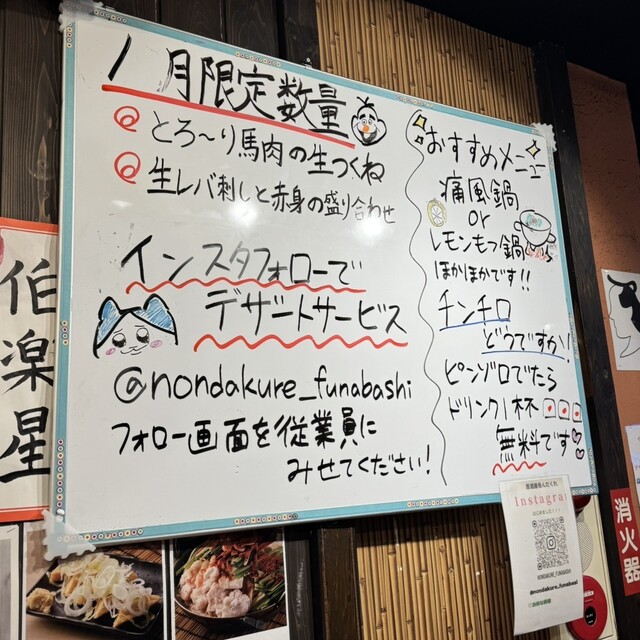 1月限定数量
とろ〜り馬肉の生つくね
生レバ刺しと赤身の盛り合わせ
インスタフォローで
デザートサービス
@nondakure_funabashi
フォロー画面を従業員に
みせてください!
おすすめメニュー
痛風鍋
or
レモンもつ鍋
ほかほかです!!
チンチロ
どうですか!
ピンゾロでたら
ドリンク1杯
無料です
伯楽星
Instagra
NONDAKURE_FUNABASHI
@nondakure_funabashi
消火器